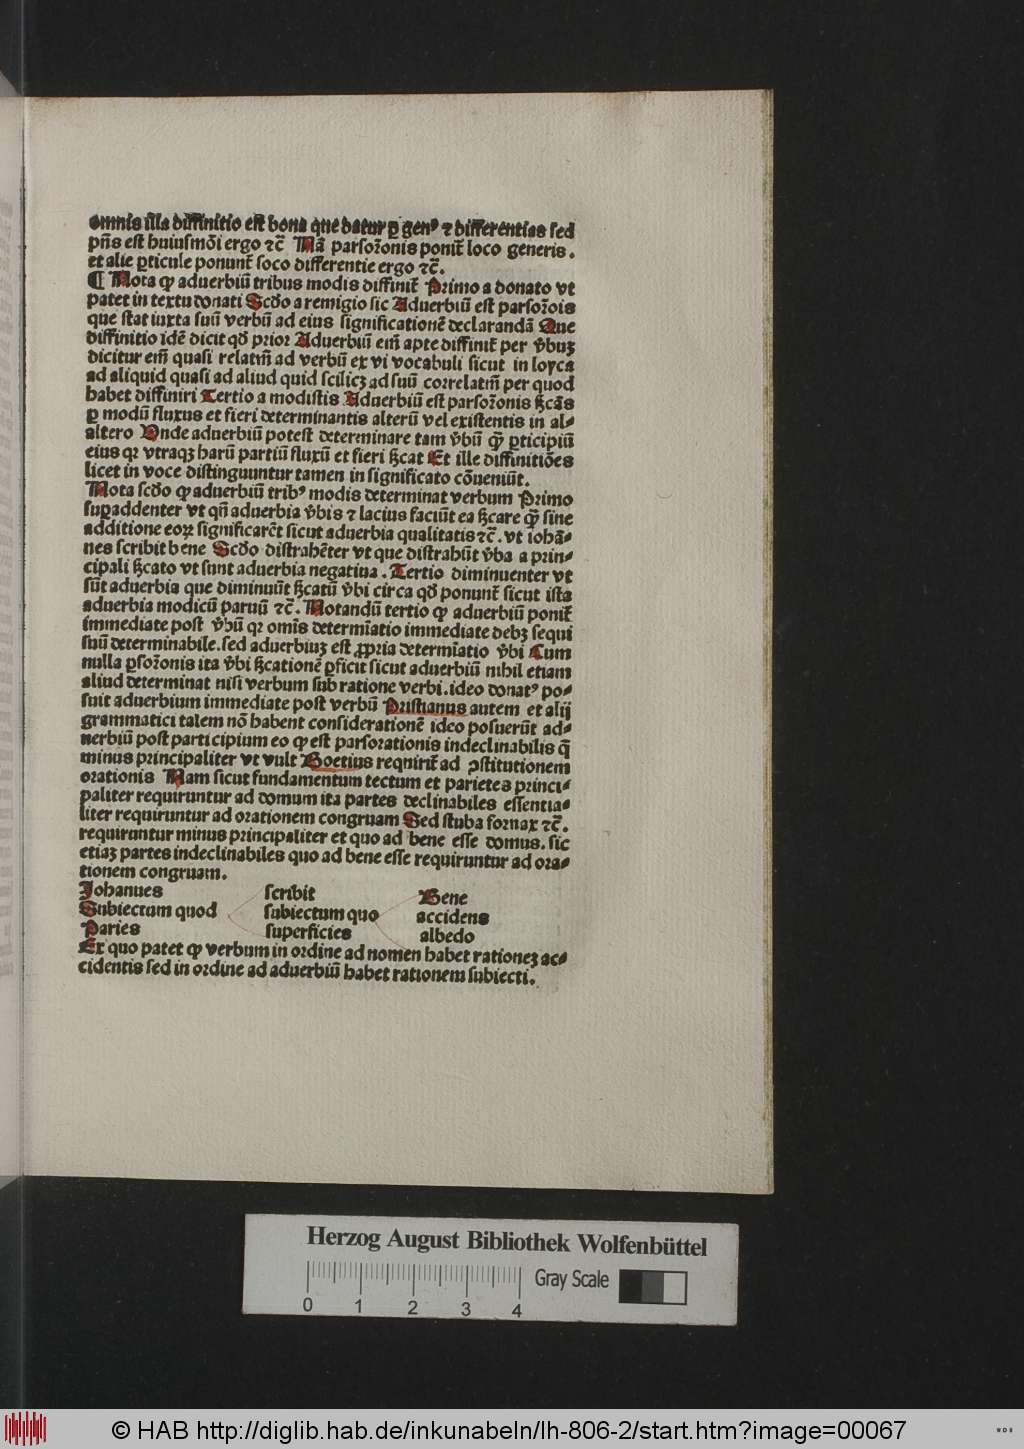 omnis illa diffinitio est bona que datur ꝑ genꝰ ⁊ differentias sed
pñs est huiusmõi ergo ⁊c̃ Nã parsor̃onis ponit̃ loco generis.
et alie ꝑticule ponunt̃ loco differentie ergo ⁊c̃.
¶ Nota ꝙ aduerbiũ tribus modis diffinit̃ Primo a donato vt
patet in textu donati Scd̃o a remigio sic Aduerbiũ est parsor̃ois
que stat iuxta suũ verbũ ad eius significationẽ declarandã Que
diffinitio idẽ dicit qd̃ prior Aduerbiũ em̃ apte diffinit̃ per ṽbuꝫ
dicitur em̃ quasi relatm̃ ad verbũ ex vi vocabuli sicut in loyca
ad aliquid quasi ad aliud quid scilicꝫ ad suũ correlatm̃ per quod
habet diffiniri Tertio a modistis Aduerbiũ est parsor̃onis ß̃cãs
ꝑ modũ fluxus et fieri determinantis alterũ vel existentis in al⸗
altero Unde aduerbiũ potest determinare tam ṽbũ ꝙ̃ ꝑticipiũ
eius qꝛ vtraqꝫ harũ partiũ fluxũ et fieri ß̃cat Et ille diffinitiões
licet in voce distinguuntur tamen in significato cõueniũt.
Nota scd̃o ꝙ aduerbiũ tribꝰ modis determinat verbum Primo
suꝑaddenter vt qñ aduerbia ṽbis ⁊ lacius faciũt ea ß̃care ꝙ̃ sine
additione eoꝝ significarẽt sicut aduerbia qualitatis ⁊c̃. vt iohã⸗
nes scribit bene Scd̃o distrahẽter vt que distrahũt ṽba a prin⸗
cipali ß̃cato vt sunt aduerbia negatiua. Tertio diminuenter vt
sũt aduerbia que diminuũt ß̃catũ ṽbi circa qd̃ ponunt̃ sicut ista
aduerbia modicũ paruũ ⁊c̃. Notandũ tertio ꝙ aduerbiũ ponit̃
immediate post ṽbũ qꝛ omĩs determĩatio immediate debꝫ sequi
suũ determinabile. sed aduerbiuꝫ est ꝓpria determĩatio ṽbi Cum
nulla ꝑsor̃onis ita ṽbi ß̃cationẽ ꝑficit sicut aduerbiũ nihil etiam
aliud determinat nisi verbum sub ratione verbi. ideo donatꝰ po⸗
suit aduerbium immediate post verbũ Pristianus autem et alij
grammatici talem nõ habent considerationẽ ideo posuerũt ad⸗
uerbiũ post participium eo ꝙ est parsorationis indeclinabilis q̃
minus principaliter vt vult Boetius reqnirit̃ ad ꝯstitutionem
orationis Nam sicut fundamentum tectum et parietes princi⸗
paliter requiruntur ad domum ita partes declinabiles essentia⸗
liter requiruntur ad orationem congruam Sed stuba fornax ⁊c̃.
requiruntur minus principaliter et quo ad bene esse domus. sic
etiaꝫ partes indeclinabiles quo ad bene esse requiruntur ad ora⸗
tionem congruam.
Johannes scribit Bene
Subiectum quod subiectum quo accidens
Paries superficies albedo
Ex quo patet ꝙ verbum in ordine ad nomen habet rationeꝫ ac⸗
cidentis sed in ordine ad aduerbiũ habet rationem subiecti.
Herzog August Bibliothek Wolfenbüttel
Gray Scale
0 1 2 3 4
© HAB http://diglib.hab.de/inkunabeln/lh-806-2/start.htm?image=00067